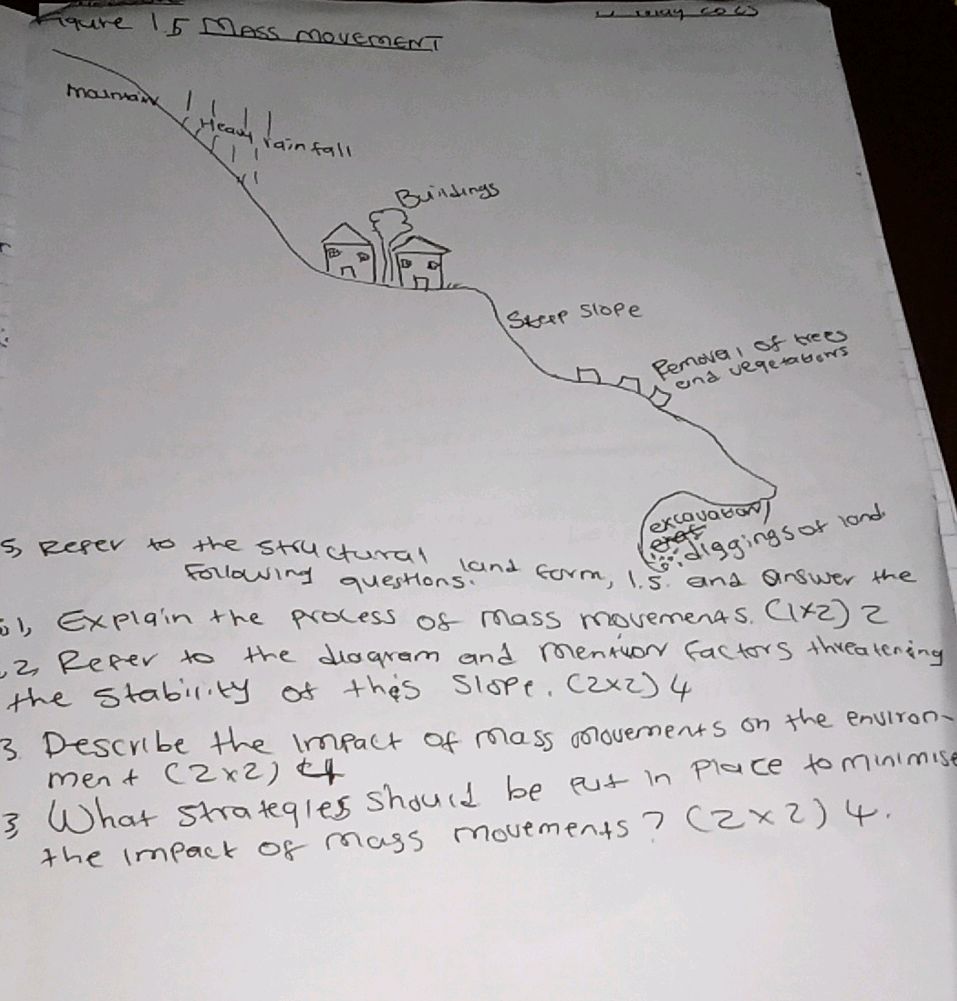 Figure 1.5 Mass movement
mountain
Heavy rainfall
Buildings
Steep slope
Removal of trees
and vegetations
excavation
diggings of land
5, Refer to the structural land form, 1.5. and answer the
following questions.
51, Explain the process of mass movements. (1x2) 2
.2, Refer to the diagram and mention factors threatening
the stability of this slope. (2x2) 4
3 Describe the impact of mass movements on the environ-
ment (2x2) 4
3, What strategies should be put in place to minimise
the impact of mass movements? (2x2) 4.